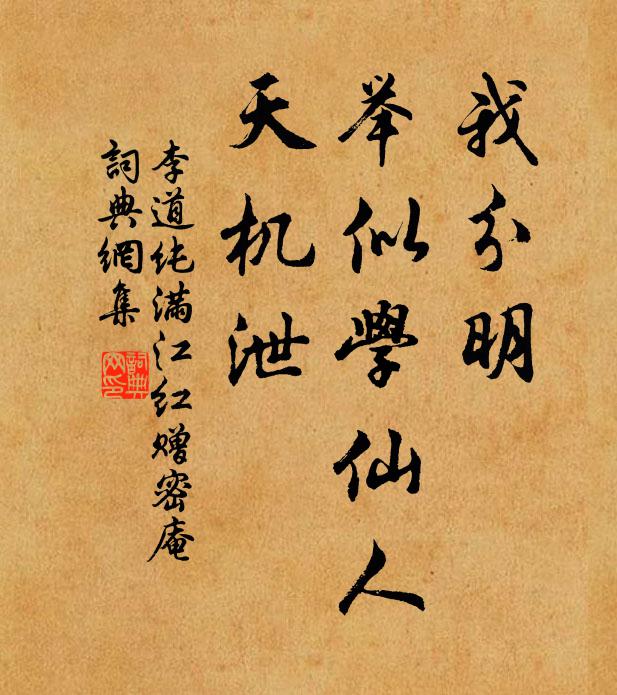 我分明
举似學仙人
天机泄
李道纯满江红赠密庵
詞典網集
詞典
网印